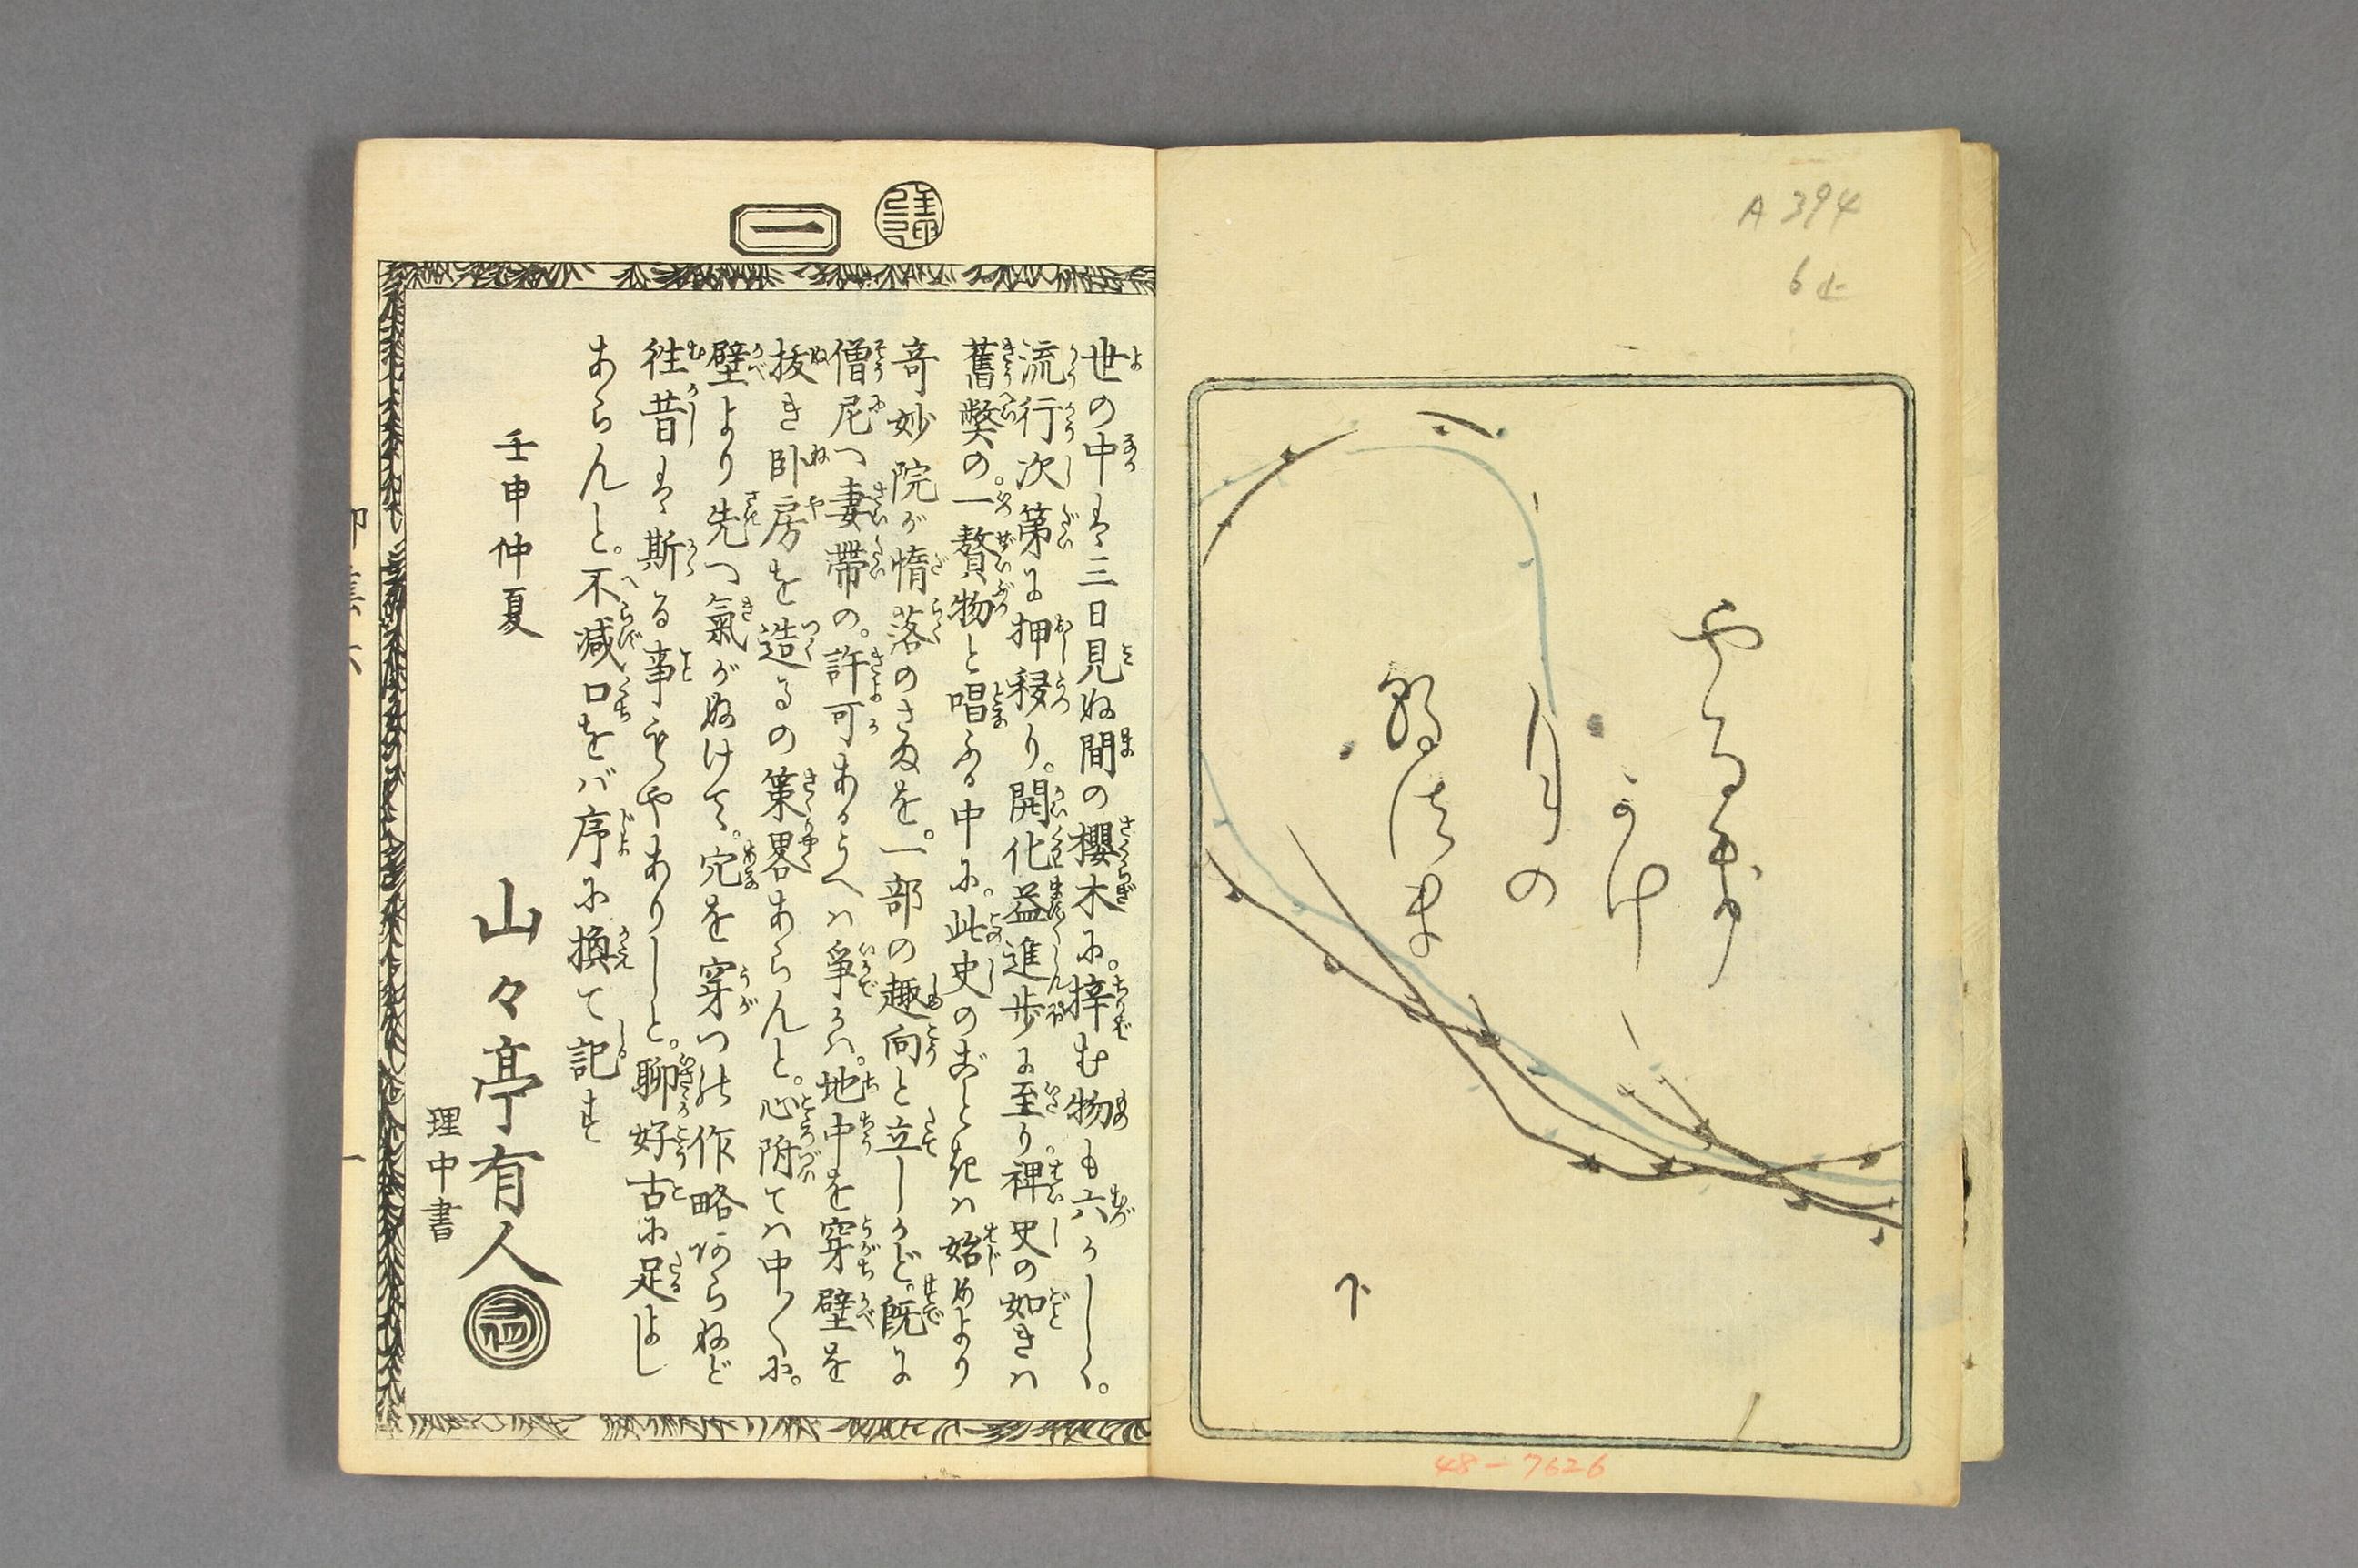 A 394
6止
48-7626
一
世の中は三日見ぬ間の櫻木に。梓む物も六かしく。
流行次第に押移り。開化益進歩に至り。稗史の如きハ
舊弊の。一贅物と唱ふる中に。此史のごときハ始めより
奇妙院が惰落のさまを。一部の趣向と立しかど。既に
僧尼へ妻帯の。許可あるうへハ爭でかハ。地中を穿壁を
抜き臥房を造るの策畧あらんと。心附てハ中〳〵に。
壁より先へ氣がぬけて。穴を穿つの作略あらねど
往昔は斯る事もやありしと。聊好古に足よし
あらんと。不減口をバ序に換て記す
壬申仲夏
山々亭有人
理中書